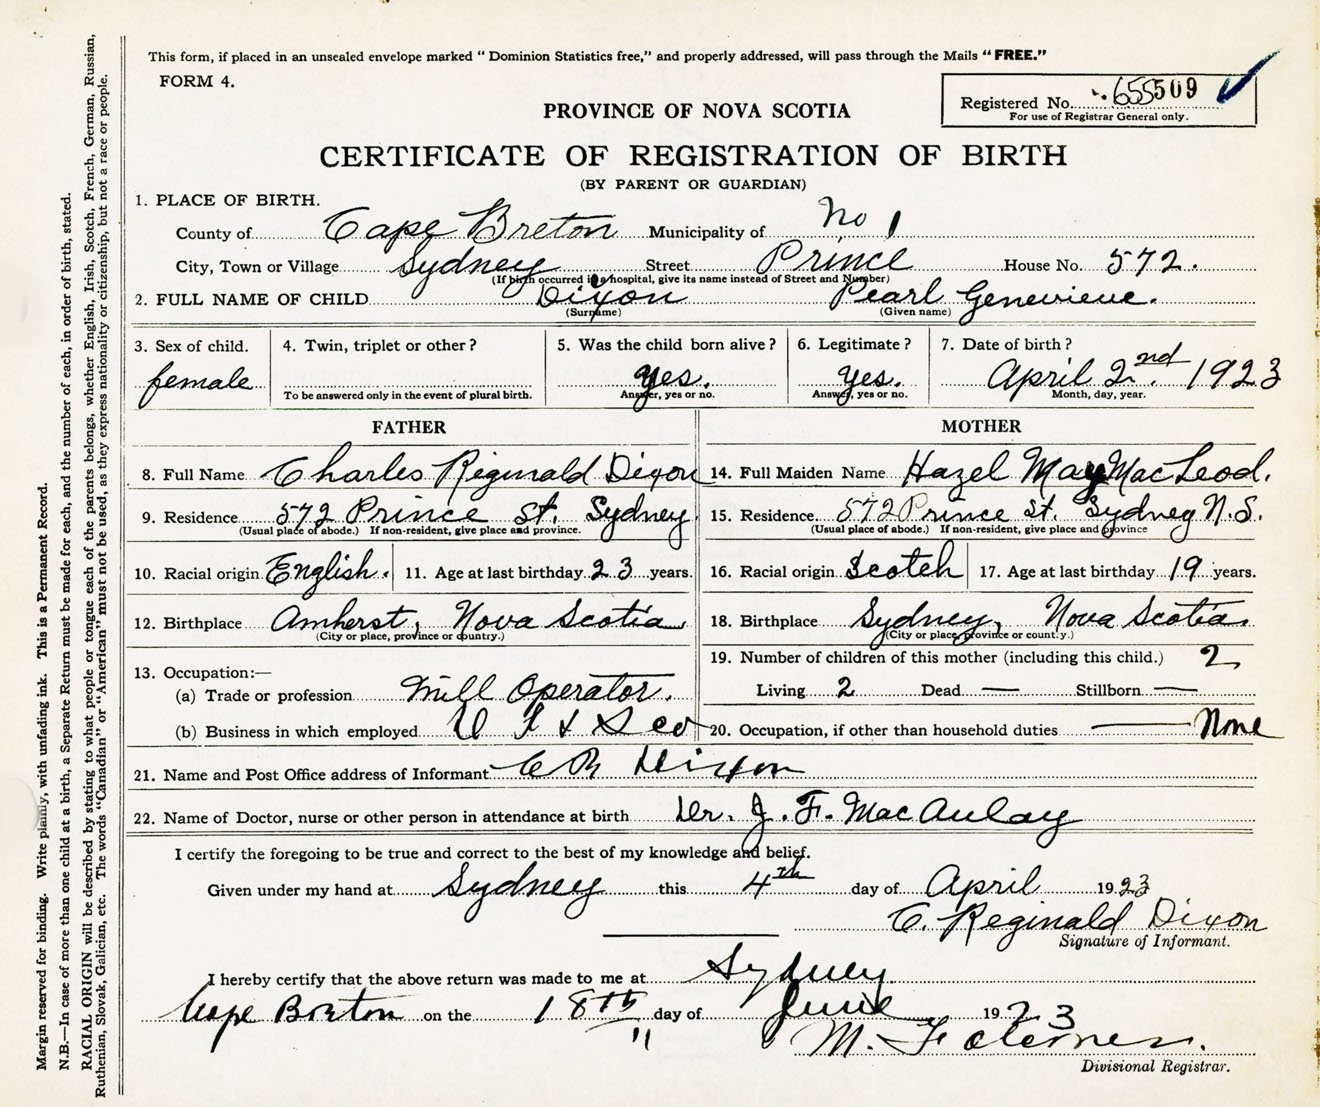 This form, if placed in an unsealed envelope marked “ Dominion Statistics free,” and properly addressed, will pass through the Mails “ FREE.”
FORM 4.
Registered No. 655509
For use of Registrar General only.
PROVINCE OF NOVA SCOTIA
CERTIFICATE OF REGISTRATION OF BIRTH
(BY PARENT OR GUARDIAN)
1. PLACE OF BIRTH.
County of Cape Breton Municipality of No 1
City, Town or Village Sydney Street Prince House No. 572.
(If birth occurred in a hospital, give its name instead of Street and Number)
2. FULL NAME OF CHILD Dixon Pearl Genevieve.
(Surname) (Given name)
3. Sex of child. 4. Twin, triplet or other ? 5. Was the child born alive ? 6. Legitimate ? 7. Date of birth ?
female yes. yes. April 2nd. 1923
To be answered only in the event of plural birth. Answer, yes or no. Answer, yes or no. Month, day, year.
FATHER MOTHER
8. Full Name Charles Reginald Dixon 14. Full Maiden Name Hazel May MacLeod.
9. Residence 572 Prince St. Sydney 15. Residence 572 Prince St. Sydney N.S.
(Usual place of abode.) If non-resident, give place and province. (Usual place of abode.) If non-resident, give place and province
10. Racial origin English. 11. Age at last birthday 23 years. 16. Racial origin Scotch 17. Age at last birthday 19 years.
12. Birthplace Amherst, Nova Scotia 18. Birthplace Sydney, Nova Scotia.
(City or place, province or country.) (City or place, province or country.)
13. Occupation:— 19. Number of children of this mother (including this child.) 2
(a) Trade or profession Mill Operator. Living 2 Dead — Stillborn —
(b) Business in which employed 20. Occupation, if other than household duties — None
21. Name and Post Office address of Informant C R Dixon
22. Name of Doctor, nurse or other person in attendance at birth Dr. J. F. MacAulay
I certify the foregoing to be true and correct to the best of my knowledge and belief.
Given under my hand at Sydney this 4th day of April 1923
C. Reginald Dixon
Signature of Informant.
I hereby certify that the above return was made to me at Sydney
Cape Breton on the 18th day of June 1923
M.
Divisional Registrar.
Margin reserved for binding. Write plainly, with unfading ink. This is a Permanent Record.
N.B.—In case of more than one child at a birth, a Separate Return must be made for each, and the number of each, in order of birth, stated.
RACIAL ORIGIN will be described by stating to what people or tongue each of the parents belongs, whether English, Irish, Scotch, French, German, Russian,
Ruthenian, Slovak, Galician, etc. The words “Canadian” or “American” must not be used, as they express nationality or citizenship, but not a race or people.